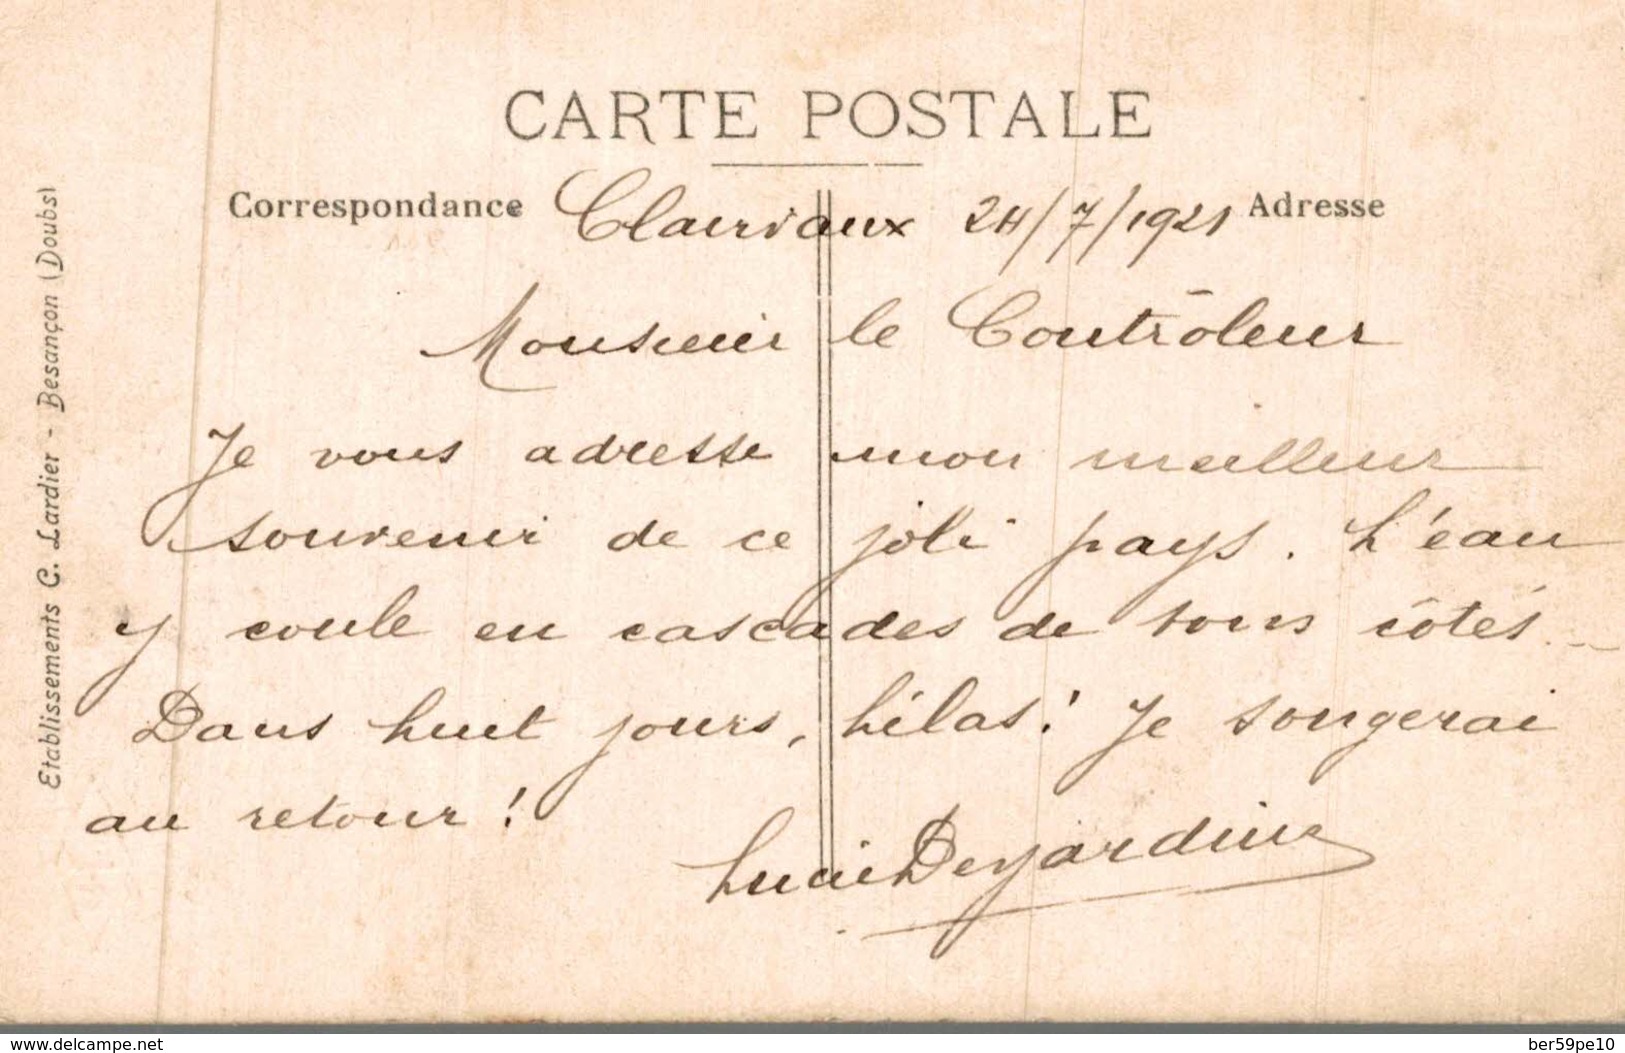 CARTE POSTALE
Correspondance Clairvaux 24/7/1921 Adresse
Monsieur le Contrôleur
Je vous adresse mon meilleur
souvenir de ce joli pays. L'eau
y coule en cascades de tous côtés
Dans huit jours, hélas! Je songerai
au retour!
Lucie Desjardins
Etablissements C. Lardier - Besançon (Doubs)
www.delcampe.net
ber59pe10